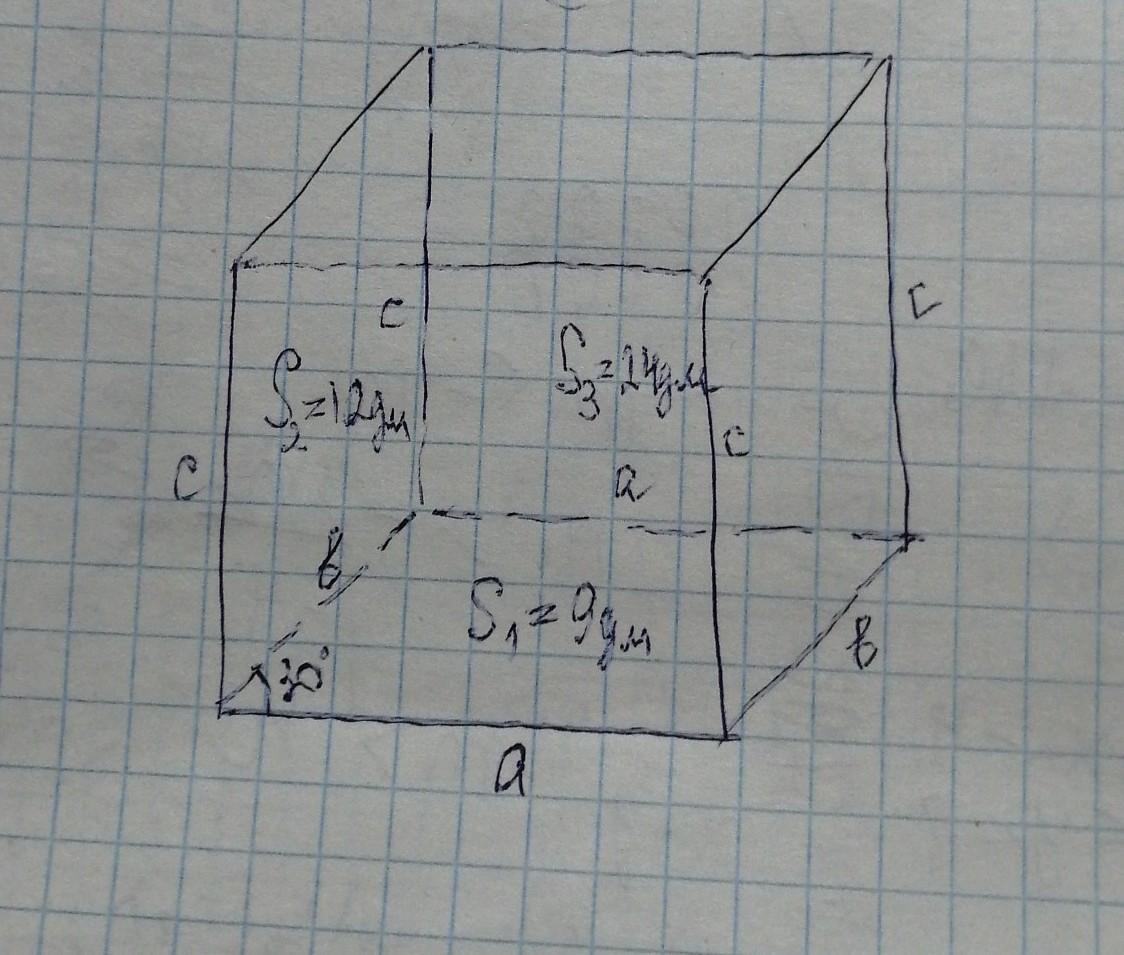 c
c
S₂=12дм
S₃=24дм
c
c
a
в
S₁=9дм
в
30°
a